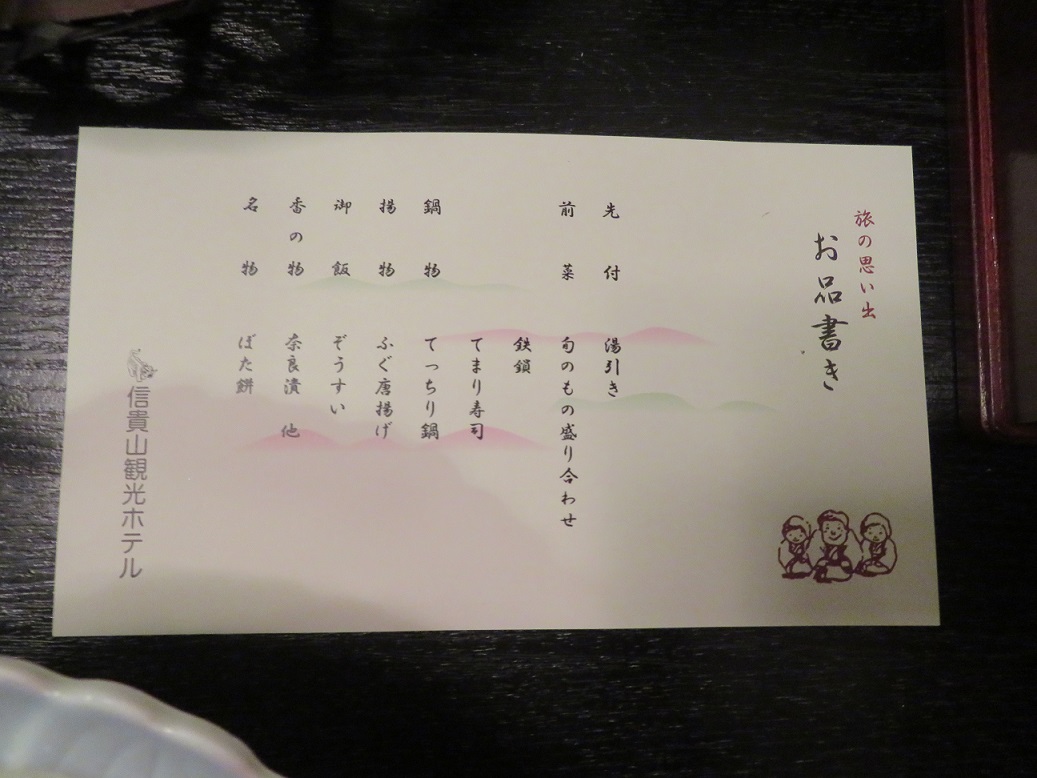 旅の思い出
お品書き
先付 湯引き
前菜 旬のもの盛り合わせ
鉄鎖
てまり寿司
鍋物 てっちり鍋
揚物 ふぐ唐揚げ
御飯 ぞうすい
香の物 奈良漬 他
名物 ぼた餅
信貴山観光ホテル